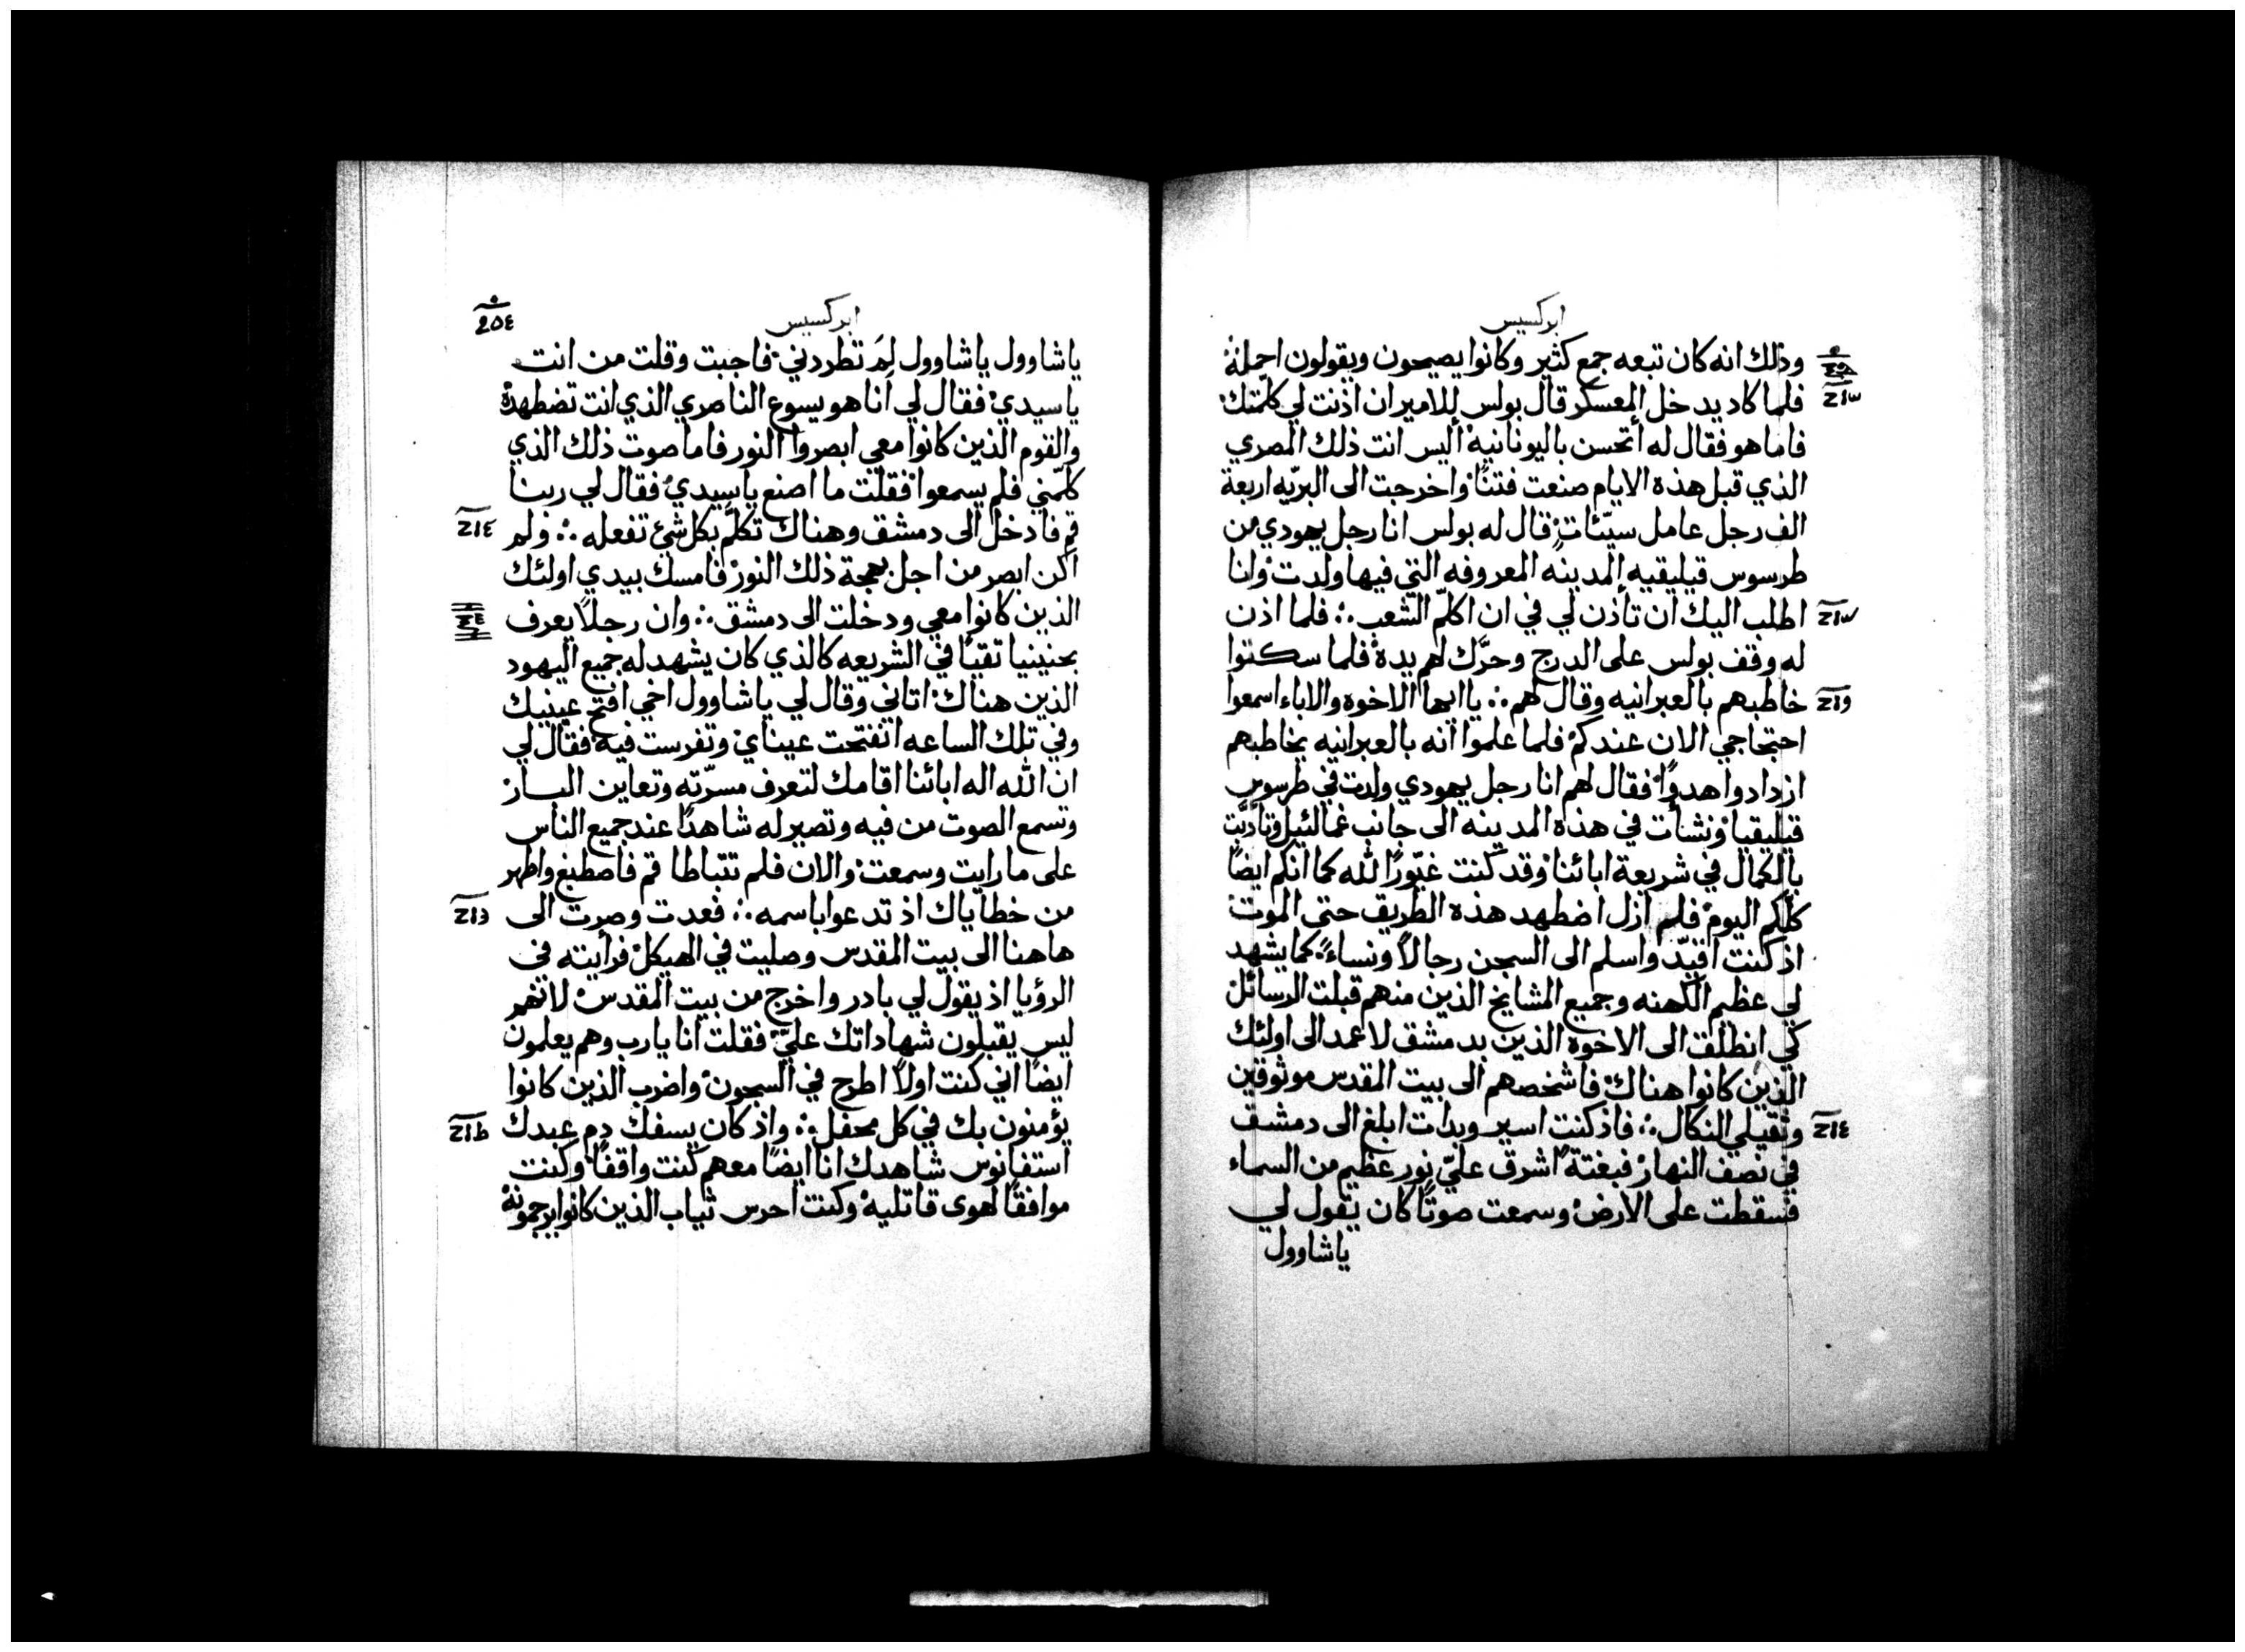 ابركسيس
وذلك انه كان تبعه جمع كثير وكانوا يصيحون ويقولون احمله
فلما كاد يدخل المعسكر قال بولس للامير ان اذنت لي كلّمتك
فاما هو فقال له أتحسن باليونانيه أليس انت ذلك المصري
الذي قبل هذه الايام صنعت فتنًا واخرجت الى البريّه اربعة
الف رجل عامل سيّئات قال له بولس انا رجل يهودي من
طرسوس قيليقيه المدينه المعروفه التي فيها ولدت وانا
اطلب اليك ان تأذن لي في ان اكلّم الشعب فلما اذن
له وقف بولس على الدرج وحرّك لهم يده فلما سكتوا
خاطبهم بالعبرانيه وقال لهم يا ايها الاخوه والاباء اسمعوا
احتجاجي الان عندكم فلما علموا انه بالعبرانيه يخاطبهم
ازدادوا هدوًا فقال لهم انا رجل يهودي ولدت في طرسوس
قيليقيا ونشأت في هذه المدينه الى جانب غمالئيل وتأدّبت
بالكمال في شريعة ابائنا وقد كنت غيّورًا لله كما انكم ايضًا
كلكم اليوم فلم ازل اضطهد هذه الطريق حتى الموت
اذ كنت اقيّد واسلم الى السجن رجالًا ونساءً كما يشهد
لي عظيم الكهنه وجميع المشايخ الذين منهم قبلت الرسائل
كي انطلق الى الاخوه الذين بدمشق لاعمد الى اولئك
الذين كانوا هناك فاشخصهم الى بيت المقدس موثوقين
النكال فاذ كنت اسير وبدات ابلغ الى دمشق
في نصف النهار فبغتةً اشرق عليّ نور عظيم من السماء
فسقطت على الارض وسمعت صوتًا كان يقول لي
ياشاوول
ابركسيس
٢٥٤
ياشاوول ياشاوول لمَ تطردني فاجبت وقلت من انت
ياسيدي فقال لي أنا هو يسوع الناصري الذي انت تضطهده
والقوم الذين كانوا معي ابصروا النور فاما صوت ذلك الذي
كلّمني فلم يسمعوا فقلت ما اصنع ياسيدي فقال لي ربنا
قم فادخل الى دمشق وهناك تكلّم بكل شئ تفعله ولم
اكن ابصر من اجل بهجة ذلك النور فامسك بيدي اولئك
الذين كانوا معي ودخلت الى دمشق وان رجلًا يعرف
بحنينيا تقيًا في الشريعه كالذي كان يشهد له جميع اليهود
الذين هناك اتاني وقال لي ياشاوول اخي افتح عينيك
وفي تلك الساعه انفتحت عيناي وتفرست فيه فقال لي
ان الله اله ابائنا اقامك لتعرف مسرّته وتعاين البار
وتسمع الصوت من فيه وتصير له شاهدًا عند جميع الناس
على ما رايت وسمعت والان فلم تتباطا قم فاصطبغ واطهر
من خطاياك اذ تدعوا باسمه فعدت وصرت الى
هاهنا الى بيت المقدس وصليت في الهيكل فرأيته في
الرؤيا اذ يقول لي بادر واخرج من بيت المقدس لانهم
ليس يقبلون شهاداتك عليّ فقلت انا يارب وهم يعلمون
ايضًا اني كنت اولًا اطرح في السجون واضرب الذين كانوا
يؤمنون بك في كل محفل واذ كان يسفك دم عبدك
استفانوس شاهدك انا ايضًا معهم كنت واقفًا وكنت
موافقًا لهوى قاتليه وكنت احرس ثياب الذين كانوا يرجمونه